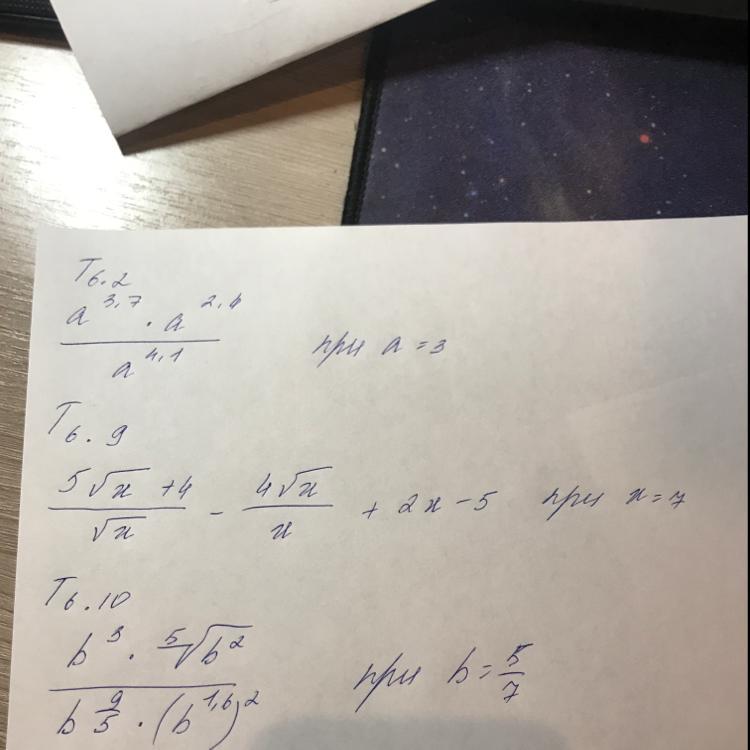 T6.2
a^3,7 · a^2,4 / a^4,1 при a = 3
T6.9
(5√x + 4) / √x - 4√x / x + 2x - 5 при x = 7
T6.10
b^3 · ⁵√b^2 / b^(9/5) · (b^1,6)^2 при b = 5/7